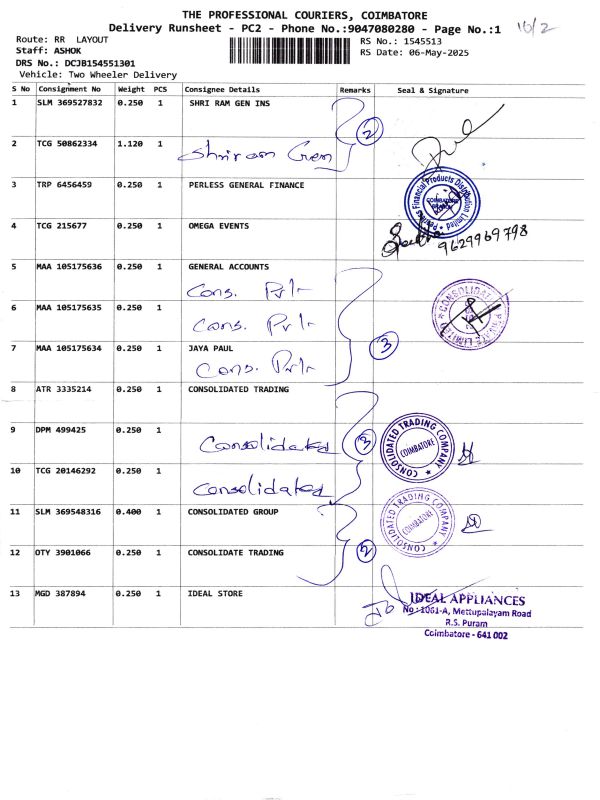 THE PROFESSIONAL COURIERS, COIMBATORE
Delivery Runsheet - PC2 - Phone No.:9047080280 - Page No.:1
Route: RR LAYOUT
RS No.: 1545513
Staff: ASHOK
RS Date: 06-May-2025
DRS No.: DCJB154551301
Vehicle: Two Wheeler Delivery
S No Consignment No Weight PCS Consignee Details Remarks Seal & Signature
1 SLM 369527832 0.250 1 SHRI RAM GEN INS
2
2 TCG 50862334 1.120 1
Shriram Gen
3 TRP 6456459 0.250 1 PERLESS GENERAL FINANCE
Peerless Financial Products Distribution Limited
COIMBATORE
4 TCG 215677 0.250 1 OMEGA EVENTS
9629969798
5 MAA 105175636 0.250 1 GENERAL ACCOUNTS
Cons. Pvt
6 MAA 105175635 0.250 1
Cons. Pvt
7 MAA 105175634 0.250 1 JAYA PAUL
3
Cons. Pvt
8 ATR 3335214 0.250 1 CONSOLIDATED TRADING
9 DPM 499425 0.250 1
Consolidated
3
CONSOLIDATED TRADING COMPANY
COIMBATORE
10 TCG 20146292 0.250 1
Consolidated
11 SLM 369548316 0.400 1 CONSOLIDATED GROUP
CONSOLIDATED TRADING COMPANY
COIMBATORE
12 OTY 3901066 0.250 1 CONSOLIDATE TRADING
2
13 MGD 387894 0.250 1 IDEAL STORE
IDEAL APPLIANCES
No : 1061-A, Mettupalayam Road
R.S. Puram
Coimbatore - 641 002